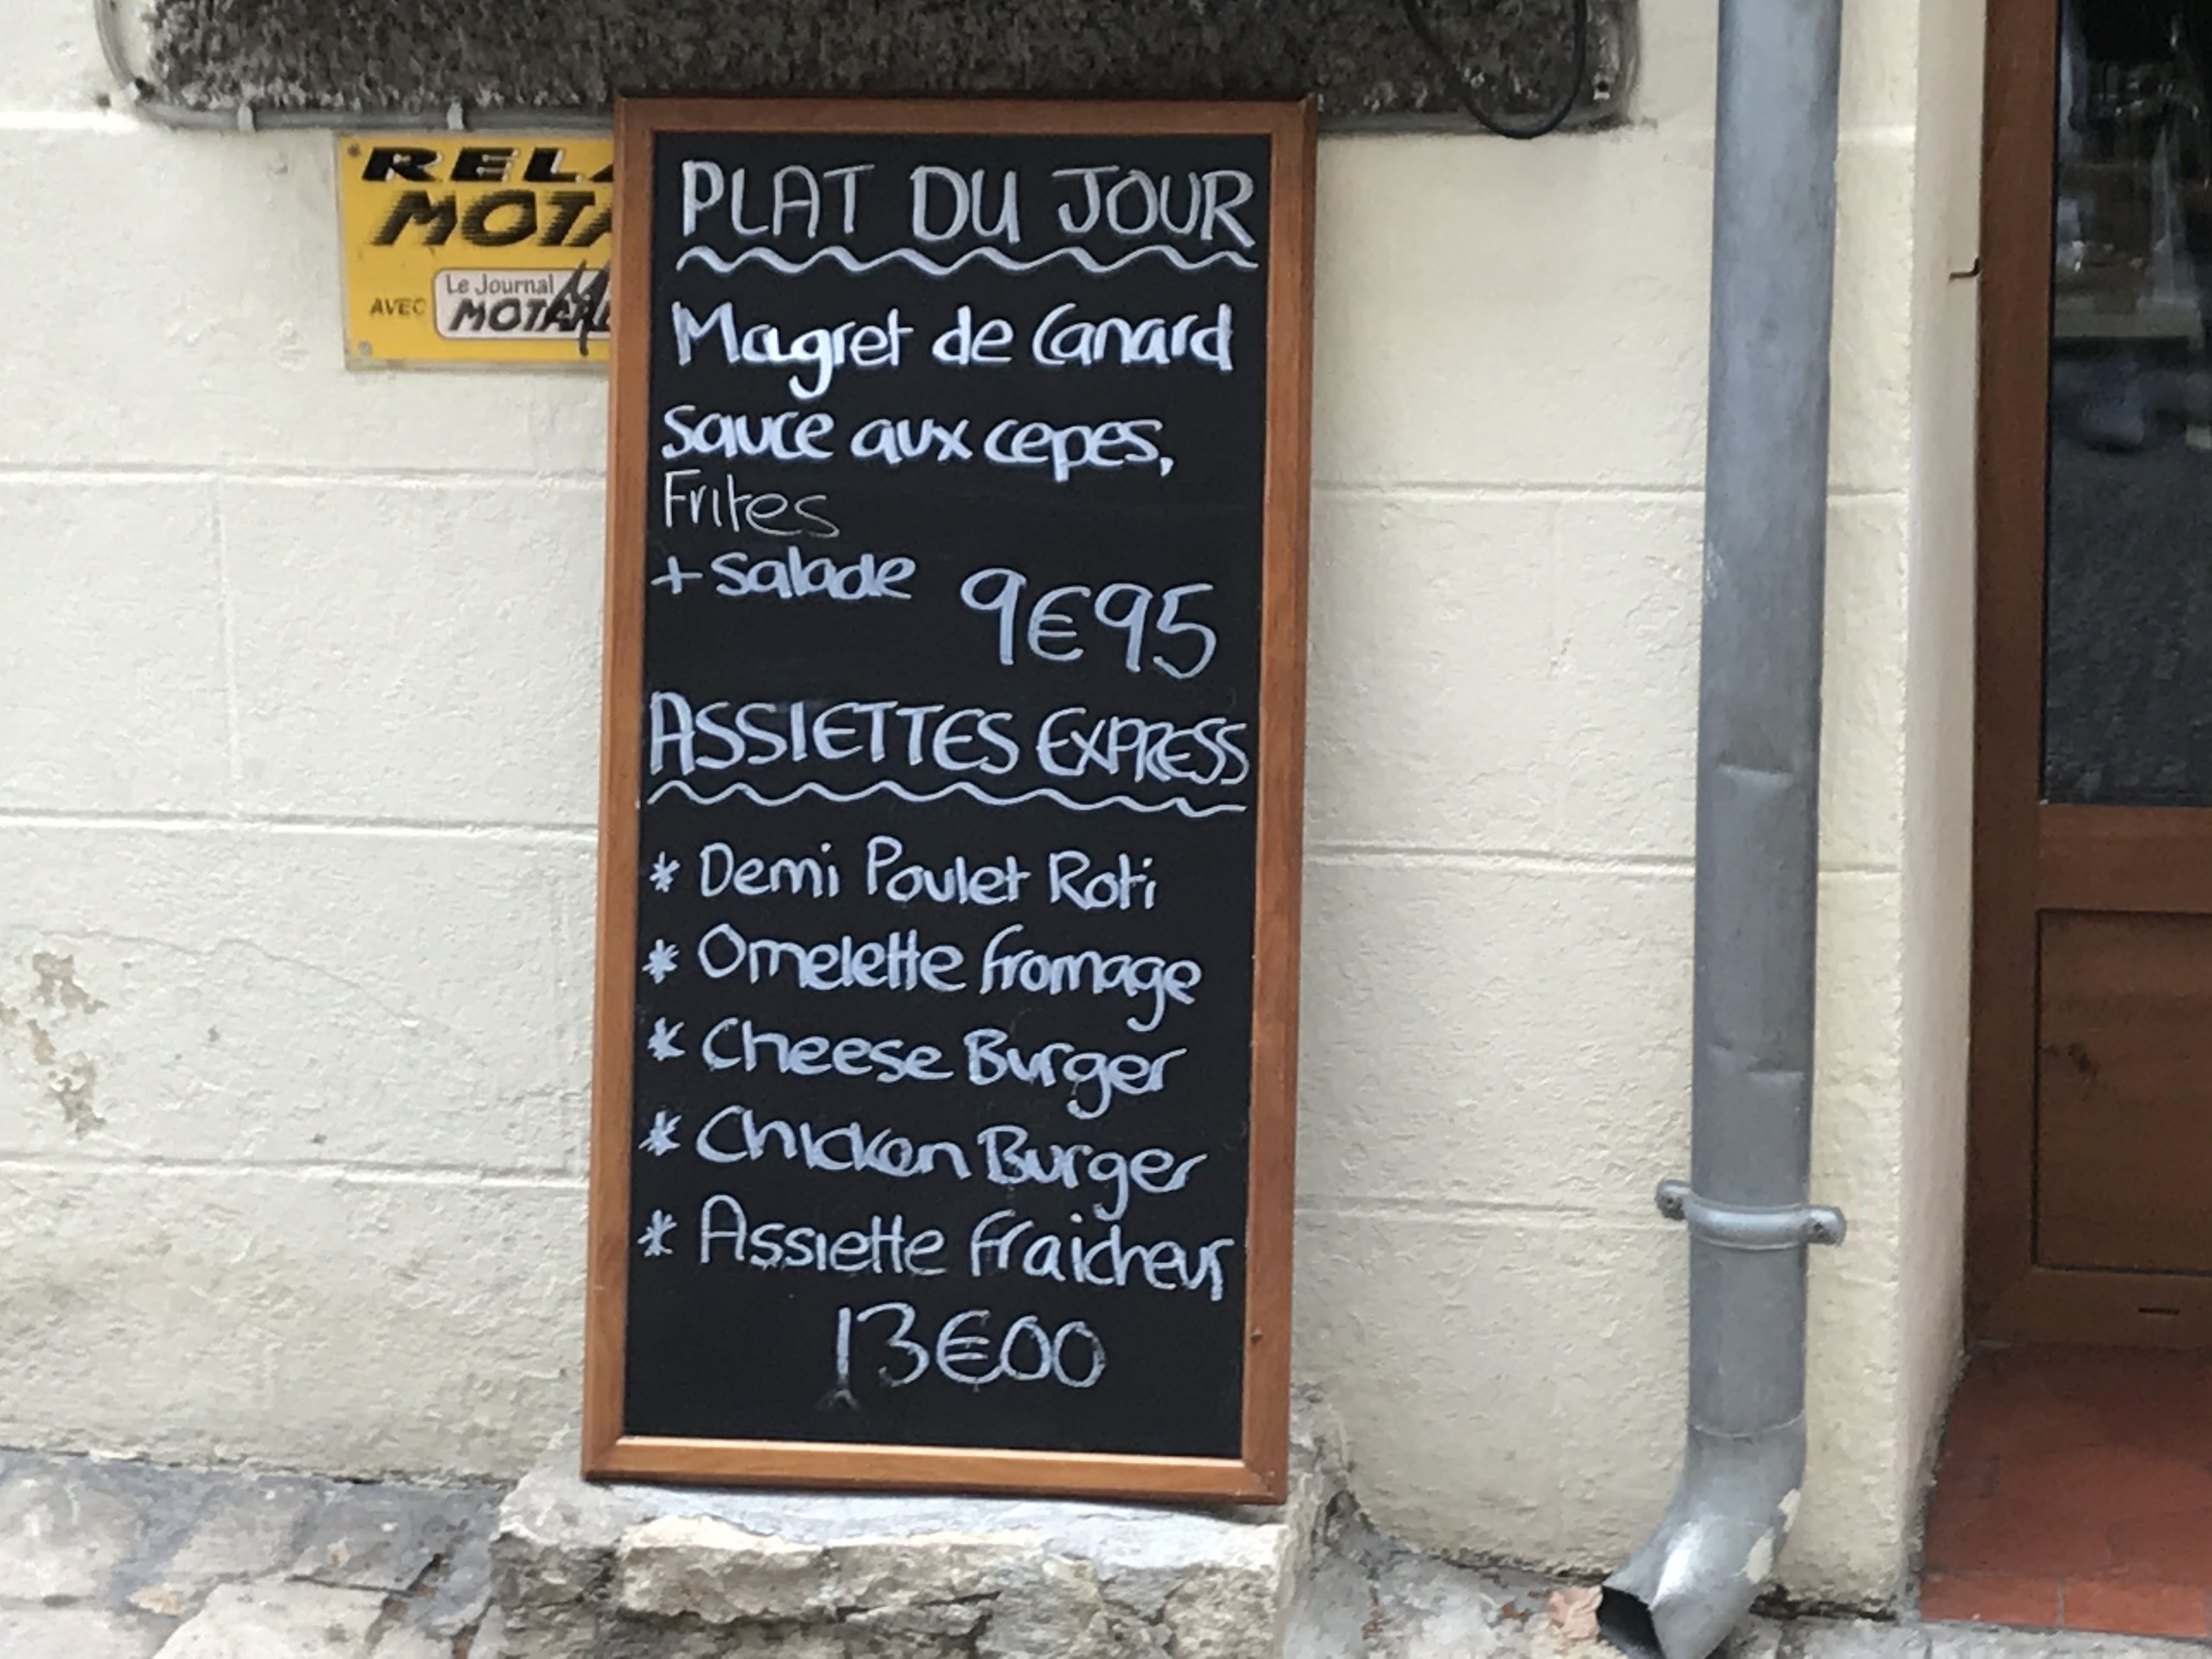 RELA
MOTA
AVEC
Le Journal
PLAT DU JOUR
Magret de Canard
sauce aux cepes,
Frites
+ salade 9€95
ASSIETTES EXPRESS
* Demi Poulet Roti
* Omelette fromage
* Cheese Burger
* Chicken Burger
* Assiette Fraicheur
13€00